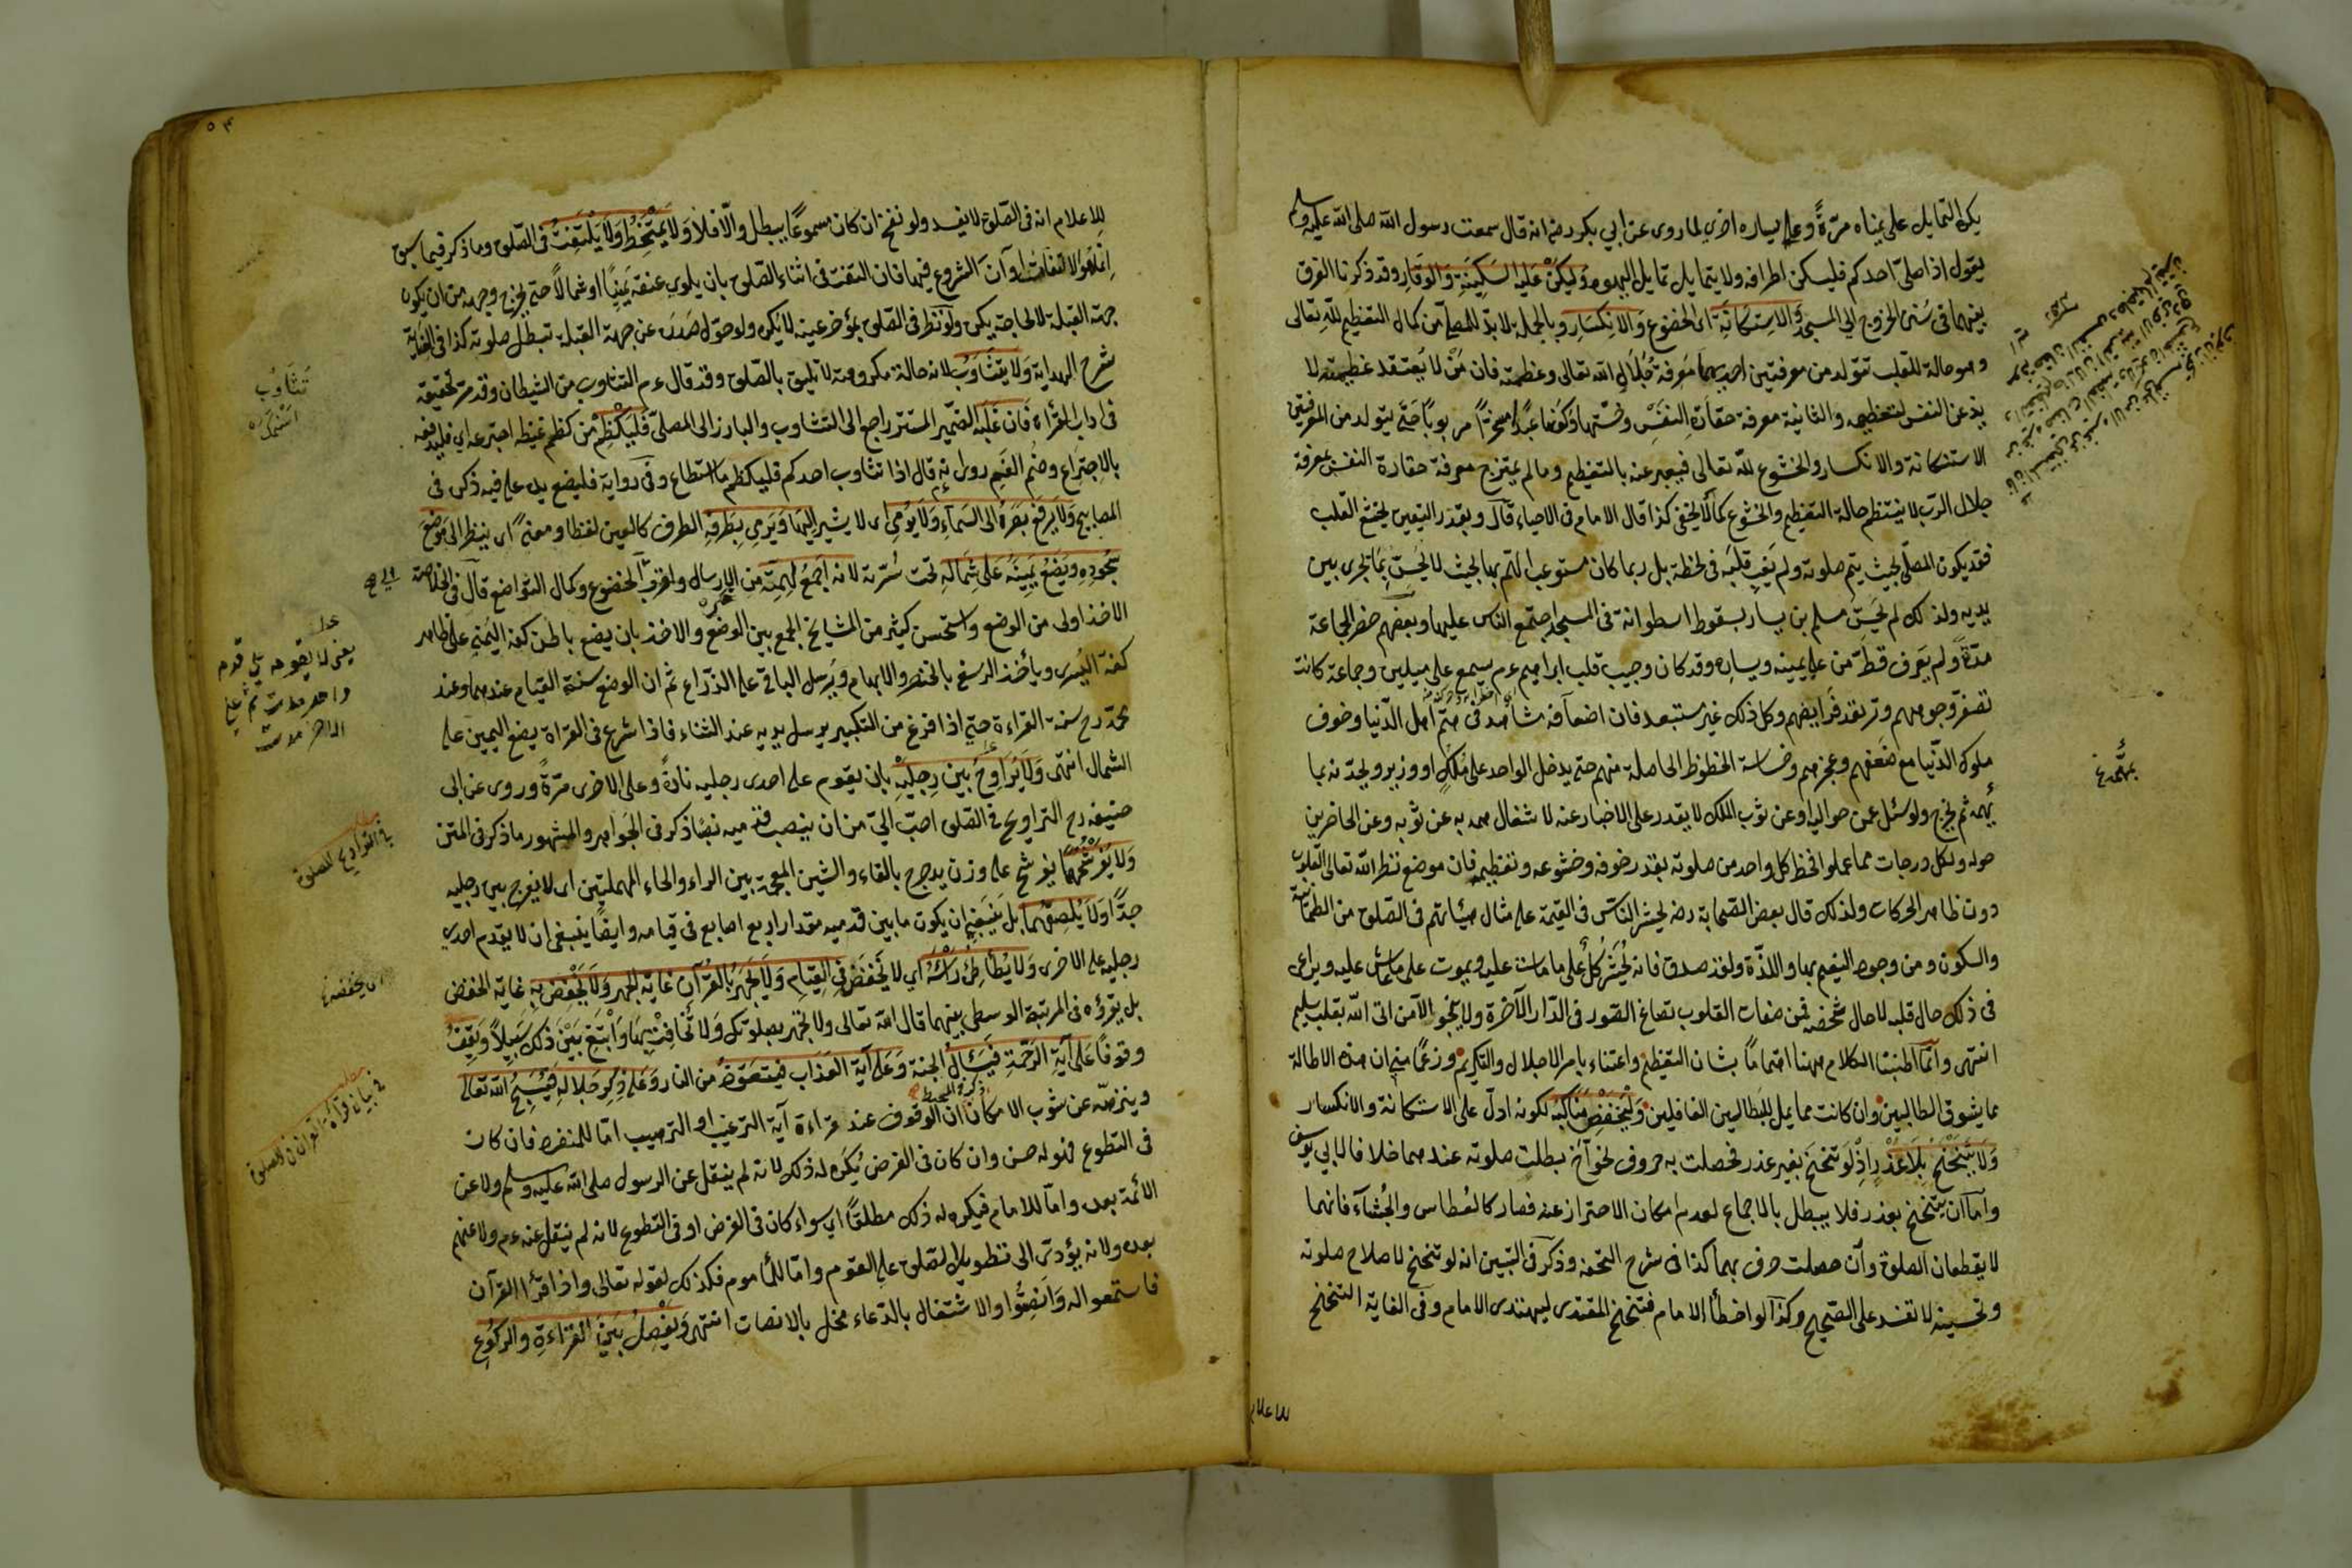 يكره التمايل على يمناه مرّةً وعلى يساره اخرى لما روى عن ابي بكر رضه انه قال سمعت رسول الله صلى الله عليه وسلم
يقول اذا صلّى احدكم فليسكن اطرافه ولا يتمايل تمايل اليهود وَليَكُنْ عَلَيهِ السَكِينَةِ وَالوَقَارِ وقد ذكرنا الفرق
بينهما فى سُنن الخروج الى المسجد وَالاِستِكَانَةِ اى الخضوع وَالاِنكِسَارِ وبالجملة لا بدّ للمصلّى من كمال التعظيم للّه تعالى
وهو حالة للقلب تتولد من معرفتين احديهما مَعرفة جُلَالِ الله تعالى وعظمته فان مَنْ لا يَعتقد عظمته لا
يذعن النفس لتعظيمه والثانية معرفة حقارة النفسِ وخسّتها وكونها عَبدًا مسخّرًا مربوبًا حَتّى يتولد من المعرفتين
الاستكانة والانكسار والخشوع للّه تعالى فيعبر عنه بالتعظيم وما لم يمتزج معرفة حقارة النفس بمعرفة
جلال الربّ لا ينتظم حالة التعظيم والخشوع كما لا يخفى كذا قال الامام فى الاحياء قال وبقدر اليقين يخشع القلب
فقد يكون المصلّى بحيث يتم صلوته ولم يَغِب قلبُه فى لحظة بل ربما كان مستوعب الهمّ بها بحيث لا يُحسّ بِمَا تجرى بين
يديه ولذلك لم يُحسّ مسلم بن يسار بسقوط اسطوانة فى المسجد اجتمع الناس عليها وبعضهم حضر الجماعة
مدّةً ولم يَعرف قطّ من على يمينه ويساره وقد كان وجيب قلب ابراهيم عم يسمع على ميلين وجماعة كانت
تصفرّ وجوههم وترتعد فرايضهم وكل ذلك غير مستبعد فان اضعافه شاهد فى همّ اهل الدّنيا وخوف
ملوك الدّنيا مع ضعفهم وعجزهم وخساسة الحظوظ الحاصلة منهم حتى يدخل الواحد على مَلكٍ او وزير ويحدّثه بما
يُهمّه ثم يخرج ولو سُئل عمن حواليه او عن ثوب الملك لا يقدر على الاخبار عنه لاشتغال همّه به عن ثوبه وعن الحاضرين
حوله ولكل درجات مما عملوا فحظ كل واحد من صلوته بقدر خوفه وخشوعه وتعظيمه فان موضع نظر الله تعالى القلوب
دون ظاهر الحركات ولذلك قال بعض الصحابة رضه يحشر الناس فى القيمة على مثال هيئاتهم فى الصلوة من الطمانينة
والسكون ومن وجود النعيم بها واللذّة ولقد صدق فانه يُحشر كلٌ على ما مات عليه ويموت على ما عاش عليه ويراعى
فى ذلك حال قلبه لا حال شخصه فمن صفات القلوب تصاغ الصّور فى الدّار الآخرة ولا ينجو الا من اتى الله بقلب سليم
انتهى وانما اطنبنا الكلام ههنا اهتمامًا بشان التعظيم واعتناء بامر الاجلال والتكريم وزعمًا منى ان هذه الاطالة
مما يشوق الطالبين وان كانت مما يملّ البطالين الغافلين وَلْيَخْفِضْ مَنَاكِبَهُ لكونه ادلّ على الاستكانة والانكسار
وَلَا يَتَنَحْنَحْ بِلَا عُذْرٍ اذ لَوْ تنحنَح بغير عذر فحصلت به حروف نحو آخ بطلت صلوته عندهما خلافا لابى يوسف
وامّا ان يتنحنح بعذر فلا يبطل بالاجماع لعدم امكان الاحتراز عنه فصار كالعُطاس والجُشآء فانهما
لا يقطعان الصلوة وان حصلت حرف بهما كذا فى شرح التحفه وذكر فى التبيين انه لو تنحنح لاصلاح صلوته
وتحسينه لا تفسد على الصّحيح وكذا لو اخطأ الامام فتنحنح المقتدى ليهتدى الامام وفى الغاية التنحنح
للاعلام
للاعلام انه فى الصّلوة لا يفسد ولو نفخ ان كان مسموعًا يبطل والّا فلا وَلَا يَتَمَخَّطْ وَلَا يَلْتَفِتْ فى الصّلوة وما ذكر فيما سبق
انما هو الالتفات اوآن الشروع فيها فان التفت فى اثناء الصّلوة بان يلوى عنقه يَمينًا او شمالًا حتى يخرج وجهه من ان يكون
جهة القبلة لا لحاجة يكره ولو نظر فى الصّلوة بمؤخر عينه لا يكره ولو حوّل صَدرَه عن جهة القبلة تبطل صلوته كذا فى الغاية
شرح الهداية وَلَا يَتَثَاوَبُ لانه حالة مكروهة لا تليق بالصّلوة وقد قال عم التثاوب من الشيطان وقد مرّ تحقيقه
فى اداب القراءة فَان غَلَبَهُ الضّمير المستتر راجع الى التثاوب والبارز الى المصلّى فَليَكْظِمْ من كظم غيظه اجترعه اى فليدفعه
بالاجتراع وضم الفم روى انه قال اذا تثاوب احدكم فليكظم ما استطاع وفى رواية فليضع يده على فيه ذكره فى
المصابيح وَلَا يَرفَعْ بَصَرَهُ الى السّمآءِ وَلَا يُومِى اى لا يشير اليها وَيَرمِى بِطَرفِهِ الطرف كالعين لفظا ومعنىً اى ينظر الى مَوضعَ
سجُودِهِ وَيَضَعُ يَمِينَهُ عَلَى شِمَالِهِ تحت سُرّته لانه اجمَعُ لِهِمّتِهِ من الارسال واقرب الخضوع وكمال التواضع قال فى الخلاصة
الاخذ اولى من الوضع واستحسن كثير من المشايخ الجمع بين الوضع والاخذ بان يضع باطن كفه اليُمنى على ظاهر
كفه اليُسرى ويأخذ الرسغ بالخنصر والابهام ويُرسل الباقى على الذّراع ثم ان الوضع سنة القيام عندهما وعند
محمّد رح سنة القراءة حتى اذا فرغ من التكبير يرسل يديه عند الثناء فاذا شرع فى القراءة يضع اليمين على
الشمال انتهى وَلَا يُرَاوِحُ بينَ رِجلَيْهِ بان يقوم على احدى رجليه تارةً وعلى الاخرى مرّةً وروى عن ابى
حنيفه رح التراوح فى الصّلوة احبّ الىّ من ان ينصب قدميه نصبًا ذكر فى الجَواهر والمشهور ما ذكر فى المتن
وَلَا يُفَرْشِحُهُمَا يفرشح على وزن يدحرج بالفاء والشين المعجمة بين الراء والحاء المهملتين اى لا يفرج بين رجليه
جدًّا وَلَا يُلصِقُهُمَا بل يَنبغى ان يكون ما بين قدميه مقدار اربع اصابع فى قيامه وايضًا ينبغى ان لا يقدم احدى
رجليه على الاخرى وَلَا يُطَأطِئُ رَأسَهُ اى لا يخفضْ فِى القِيَامِ وَلَا يَجهَرُ بِالقُرآنِ غاية الجهر وَلَا يَخفِضُ بِهِ غاية الخفض
بل يقرؤه فى المرتبة الوسطى بينهما قال الله تعالى ولا تجهر بصلوتك وَلا تُخَافِتْ بِهَا وَابْتَغِ بَيْنَ ذلك سَبِيلًا وَيَقِفُ
وقوفًا عَلَى آيَةِ الرّحمَةِ فَيَسئَلُ الجنة وَعَلَى آيَةِ العَذَابِ فيتَعَوّذُ من النار وَعَلَى ذِكرِ جَلَالِهِ فَيُسَبّحُ الله تعالى
وينزهه عن شوب الامكان ذكره فى المحيط ان الوقوف عند قراءة آية الترغيب او الترهيب امّا للمنفرد فان كان
فى التطوع فهو له حسن وان كان فى الفرض يُكرَه له ذلك لانه لم ينقل عن الرسول صلى الله عليه وسلم ولا عن
الائمة بعده وامّا للامام فيكره له ذلك مطلقًا اى سواء كان فى الفرض او فى التطوع لانه لم ينقل عنه عم ولا عنهم
بعده ولانه يؤدّى الى تطويل الصّلوة على القوم وامّا للمأموم فكذلك لقوله تعالى واذا قرئ القرآن
فاستمعوا له وَانصِتُوا والاشتغال بالدّعاء مخل بالانصات انتهى وَيَفْصِلُ بَيْنَ القرَاءةِ وَالركُوعِ
تثاوب
اسنمك
يعنى لا يقوم على قدم
فى التراويح الصلوة
فى بيان قراءة القرآن فى الصلوة